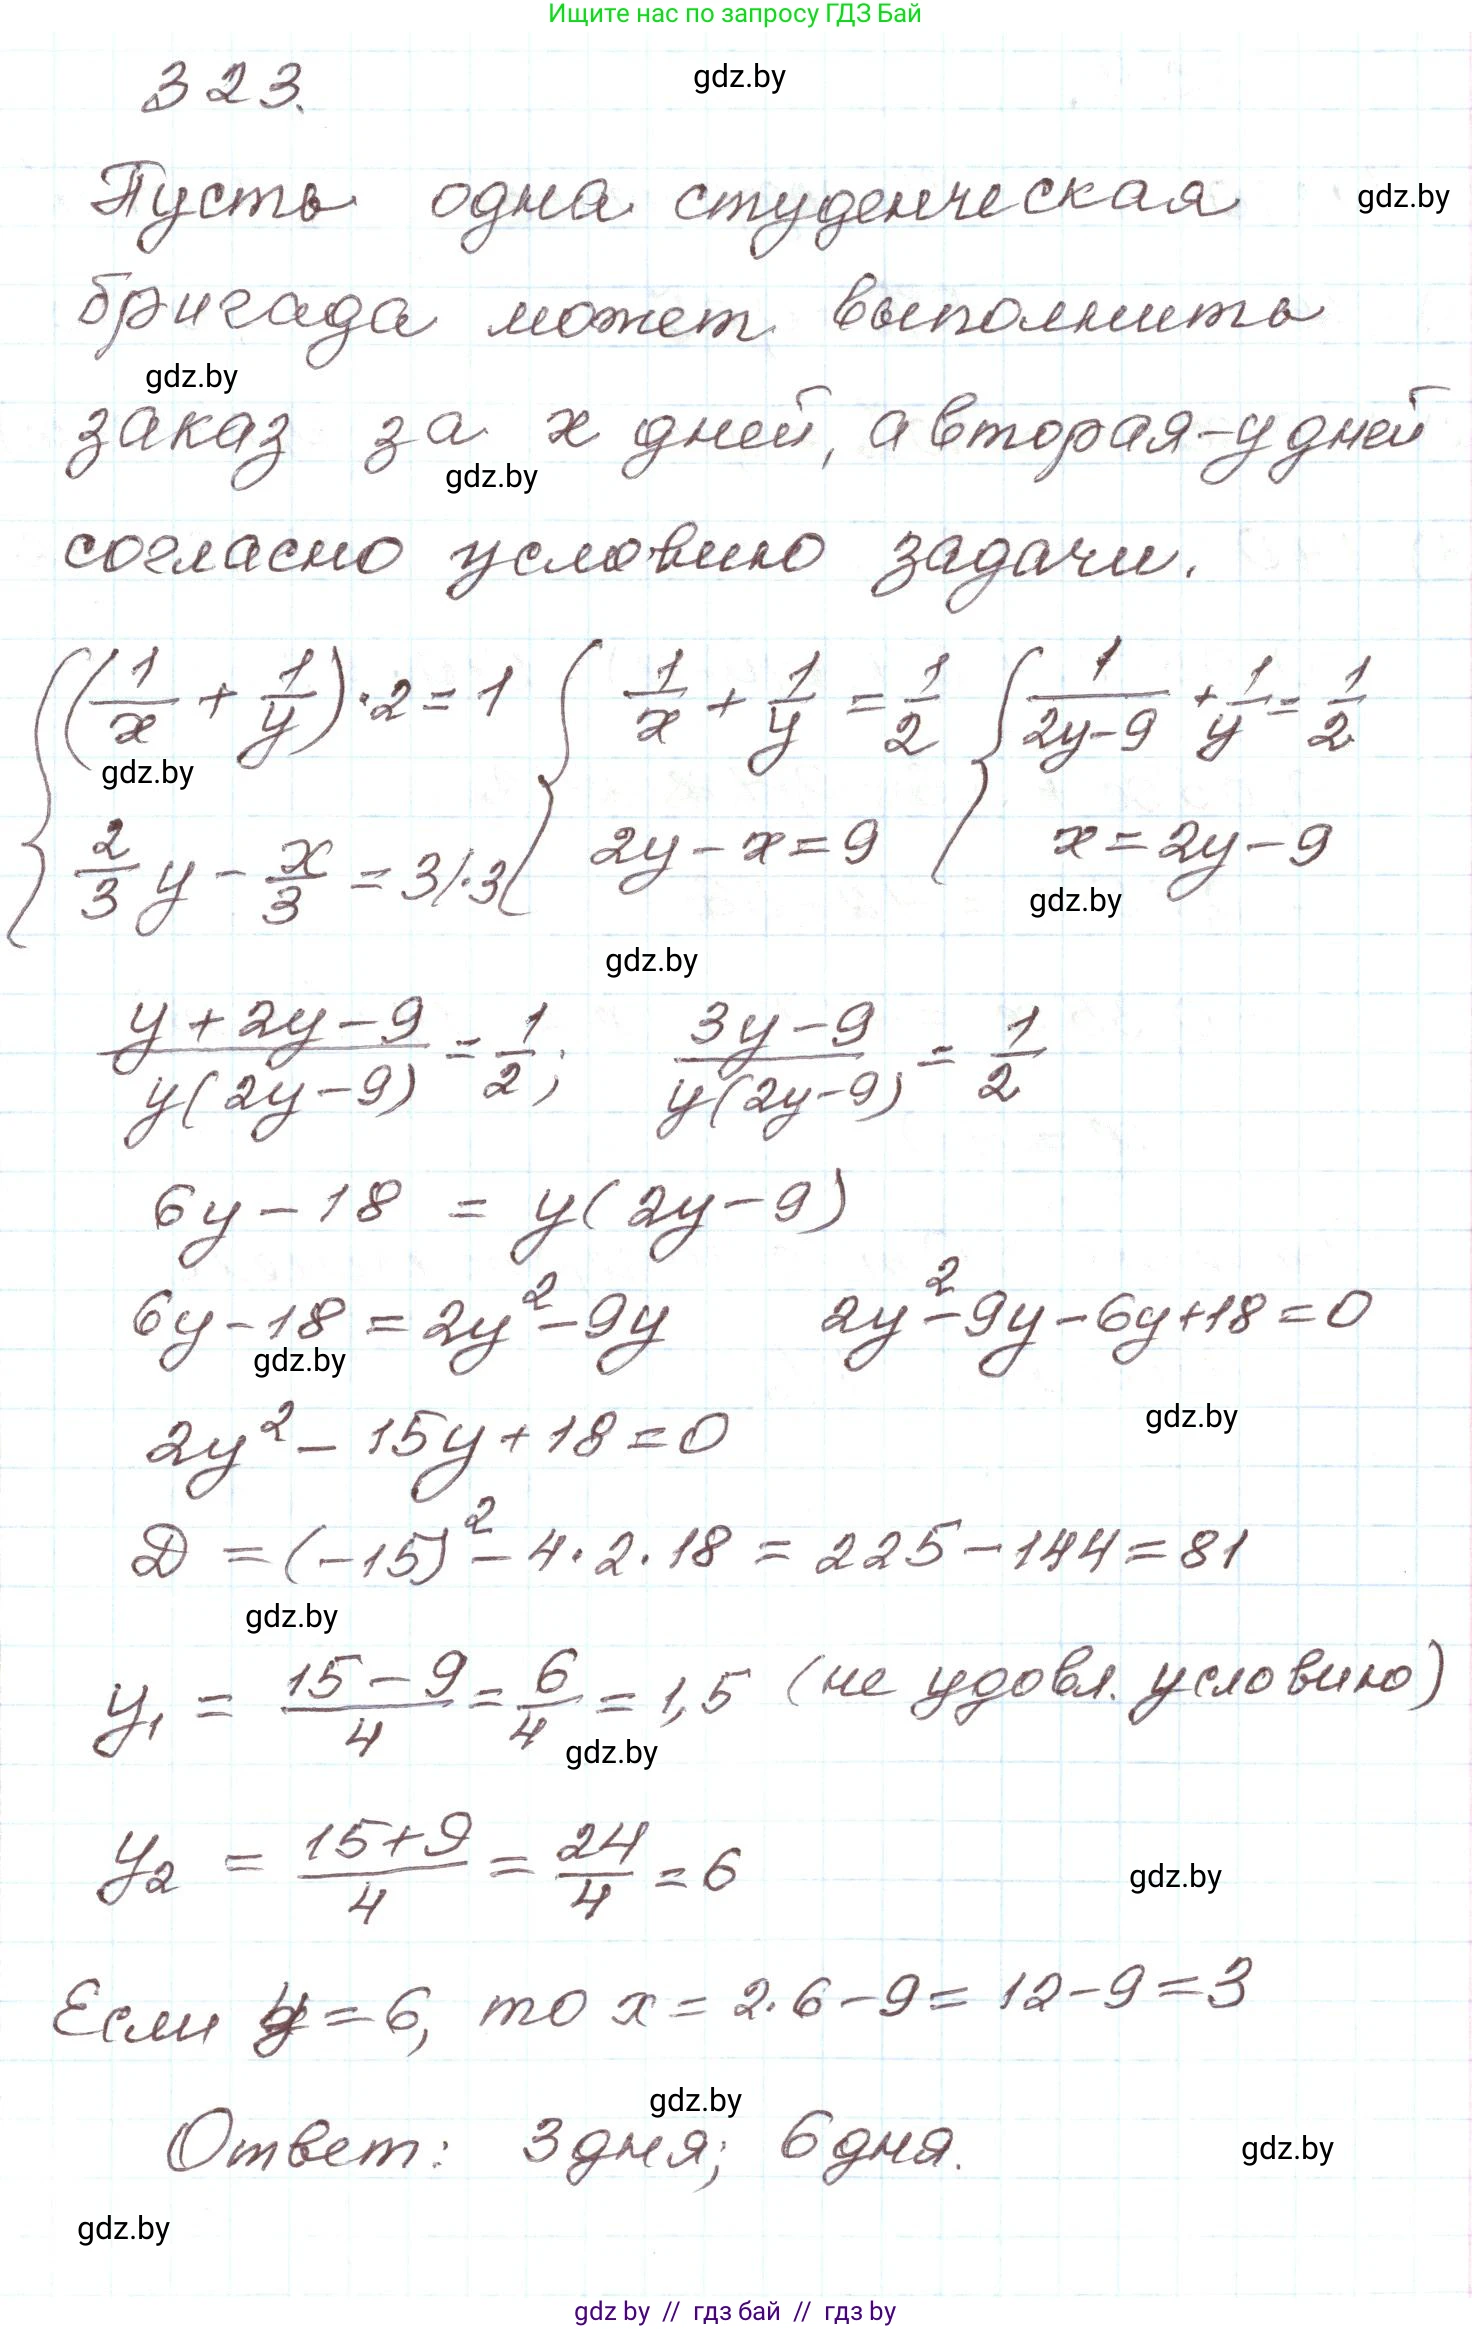 Ищите нас по запросу ГДЗ Бай
323.
gdz.by
Пусть одна студенческая
gdz.by
бригада может выполнить
gdz.by
заказ за x дней, а вторая - y дней
gdz.by
согласно условию задачи.
{ (1/x + 1/y) · 2 = 1 { 1/x + 1/y = 1/2 { 1/(2y-9) + 1/y = 1/2
gdz.by
2/3 y - x/3 = 3 | · 3 2y - x = 9 x = 2y - 9
gdz.by
gdz.by
(y + 2y - 9)/(y(2y - 9)) = 1/2; (3y - 9)/(y(2y - 9)) = 1/2
6y - 18 = y(2y - 9)
6y - 18 = 2y² - 9y 2y² - 9y - 6y + 18 = 0
gdz.by
gdz.by
2y² - 15y + 18 = 0
D = (-15)² - 4 · 2 · 18 = 225 - 144 = 81
gdz.by
y₁ = (15 - 9)/4 = 6/4 = 1,5 (не удовл. условию)
gdz.by
y₂ = (15 + 9)/4 = 24/4 = 6
gdz.by
Если y = 6, то x = 2 · 6 - 9 = 12 - 9 = 3
gdz.by
Ответ: 3 дня; 6 дня.
gdz.by
gdz.by
gdz by // гдз бай // гдз by